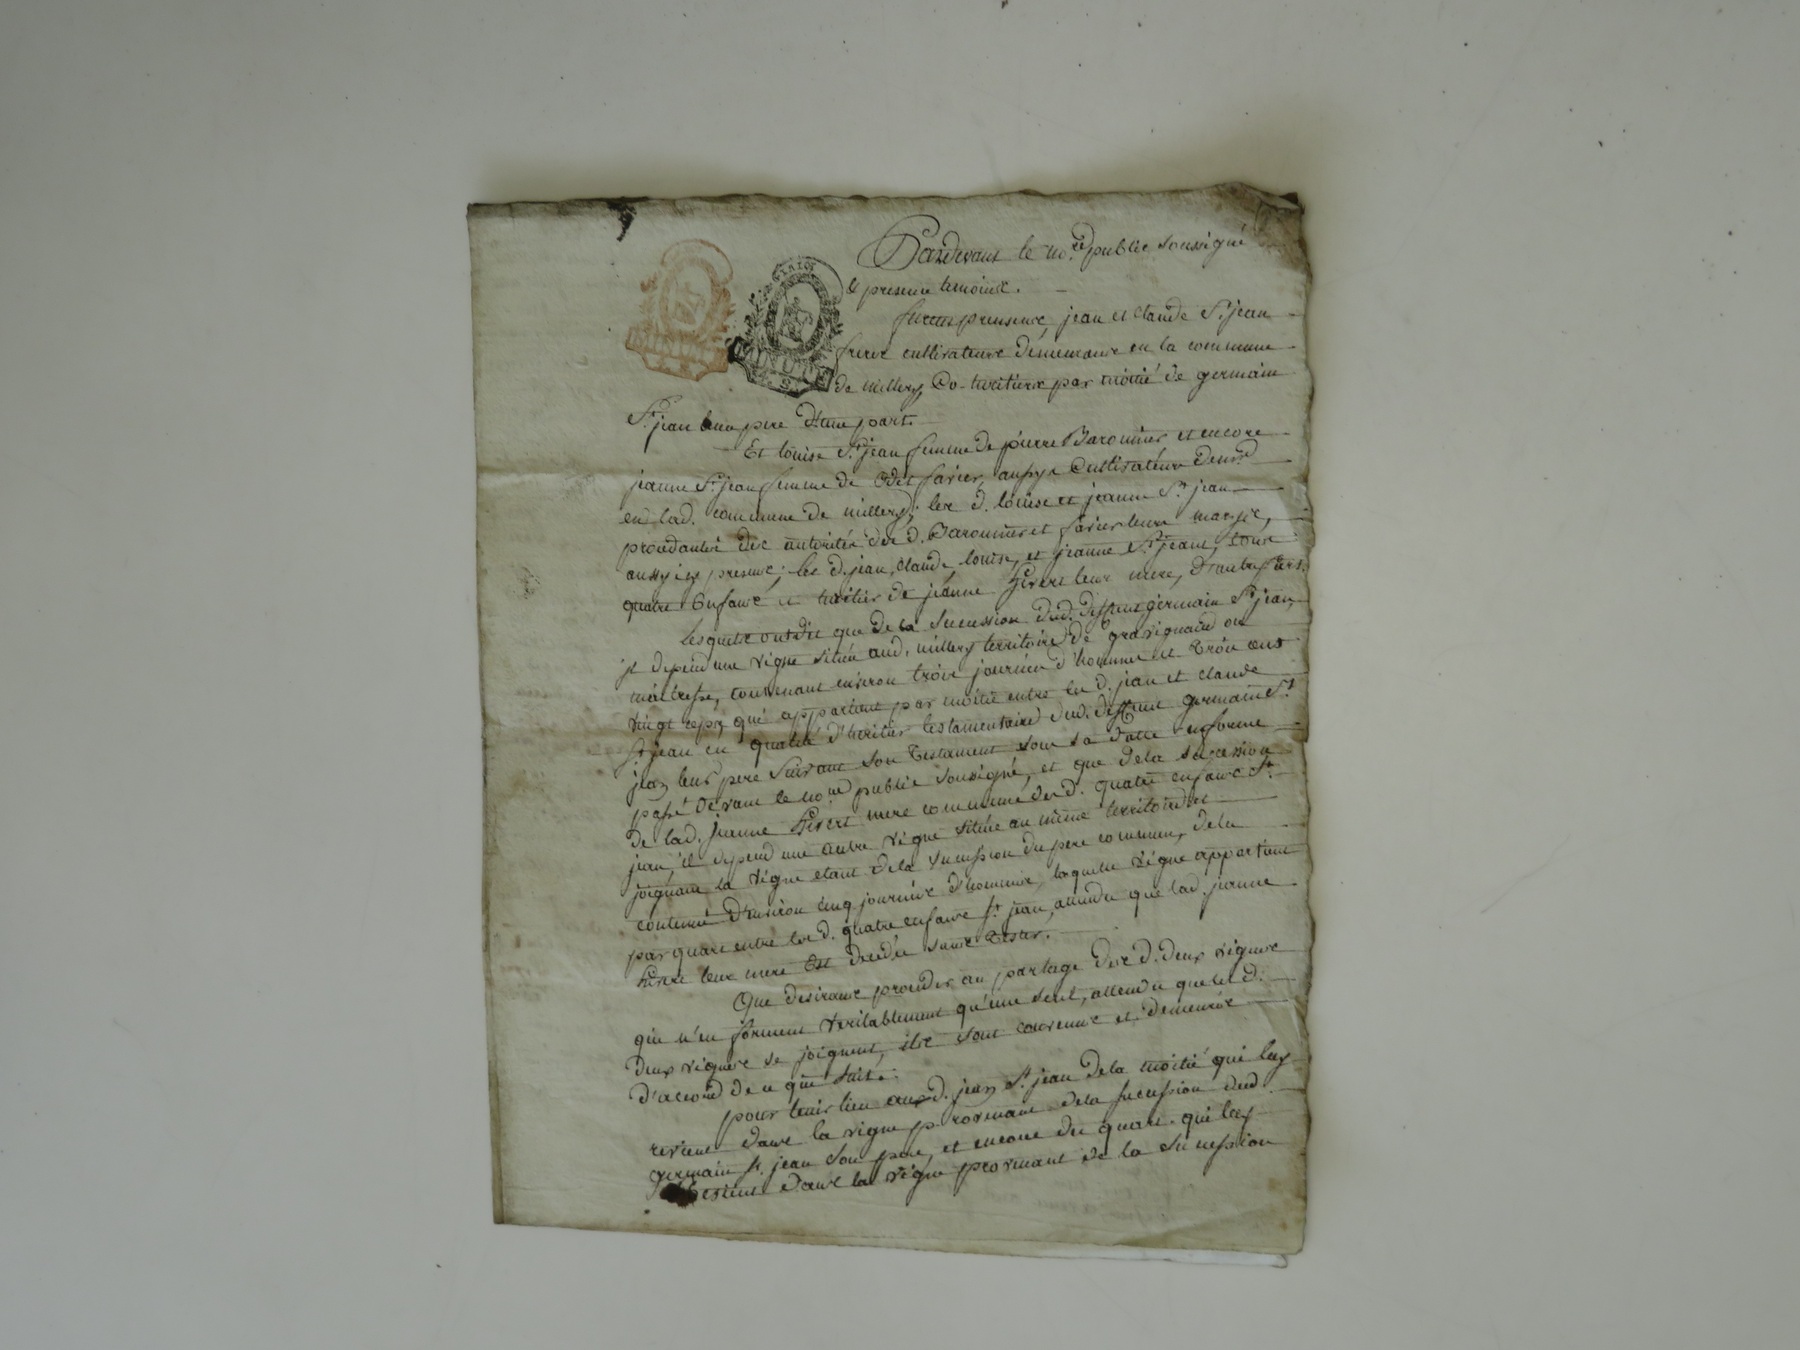 Pardevant le no.re public soussigné
& presence temoins.
furent presens, jean et claude St. jean
freres cultivateurs demeurans en la commune
de millery, Co-heritiers par moitié de germain
St. jean leur pere d'une part.
Et louise St. jean femme de pierre Baronnier et encore
jeanne St. jean femme de Odet favier, aussy Cultivateurs demt.
en lad. commune de millery; les d. louise et jeanne St. jean
procedantes des autorités des d. Baronnier et favier leurs maris,
aussy icy presens; les d. jean, claude, louise, et jeanne St. jean, tous
quatre Enfans et heritiers de jeanne hivert leur mere, d'autre part.
Lesquels ont dit que de la succession dud. deffunt germain St. jean,
il depend une vigne située aud. millery territoire de gravignand ou
contenant environ trois journées d'homme et trois cens
vingt ceps, qui appartient par moitié entre les d. jean et claude
St. jean en qualité d'heritiers testamentaires dud. deffunt germain St.
jean leur pere suivant son testament sous sa datte en forme
passé devant le no.re public soussigné, et que de la succession
de lad. jeanne hivert mere commune des d. quatre enfans St.
jean, il depend une autre vigne située au même territoire et
joignant la vigne etant de la succession du pere commun, de la
contenue d'environ cinq journées d'homme, laquelle vigne appartient
par quart entre les d. quatre enfans St. jean, attendu que lad. jeanne
hivert leur mere est decedée sans tester.
Que desirans proceder au partage des d. deux vignes
qui n'en forment veritablement qu'une seul, attendu que les d.
deux vignes se joignent, ils sont convenus et demeurés
d'accord de ce qui suit.
pour tenir lieu aud. jean St. jean de la moitié qui luy
revient dans la vigne provenant de la succession dud.
germain St. jean son pere, et encore du quart qui luy
revient dans la vigne provenant de la succession